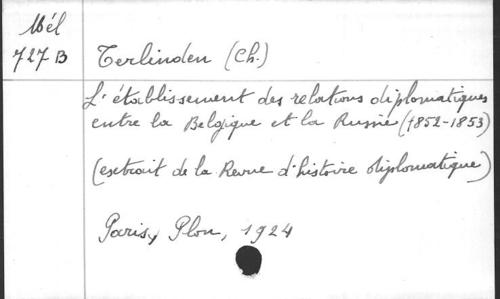 Mél
727 B
Terlinden (Ch.)
L'établissement des relations diplomatiques
entre la Belgique et la Russie (1852-1853)
(extrait de la Revue d'histoire diplomatique)
Paris, Plon, 1924